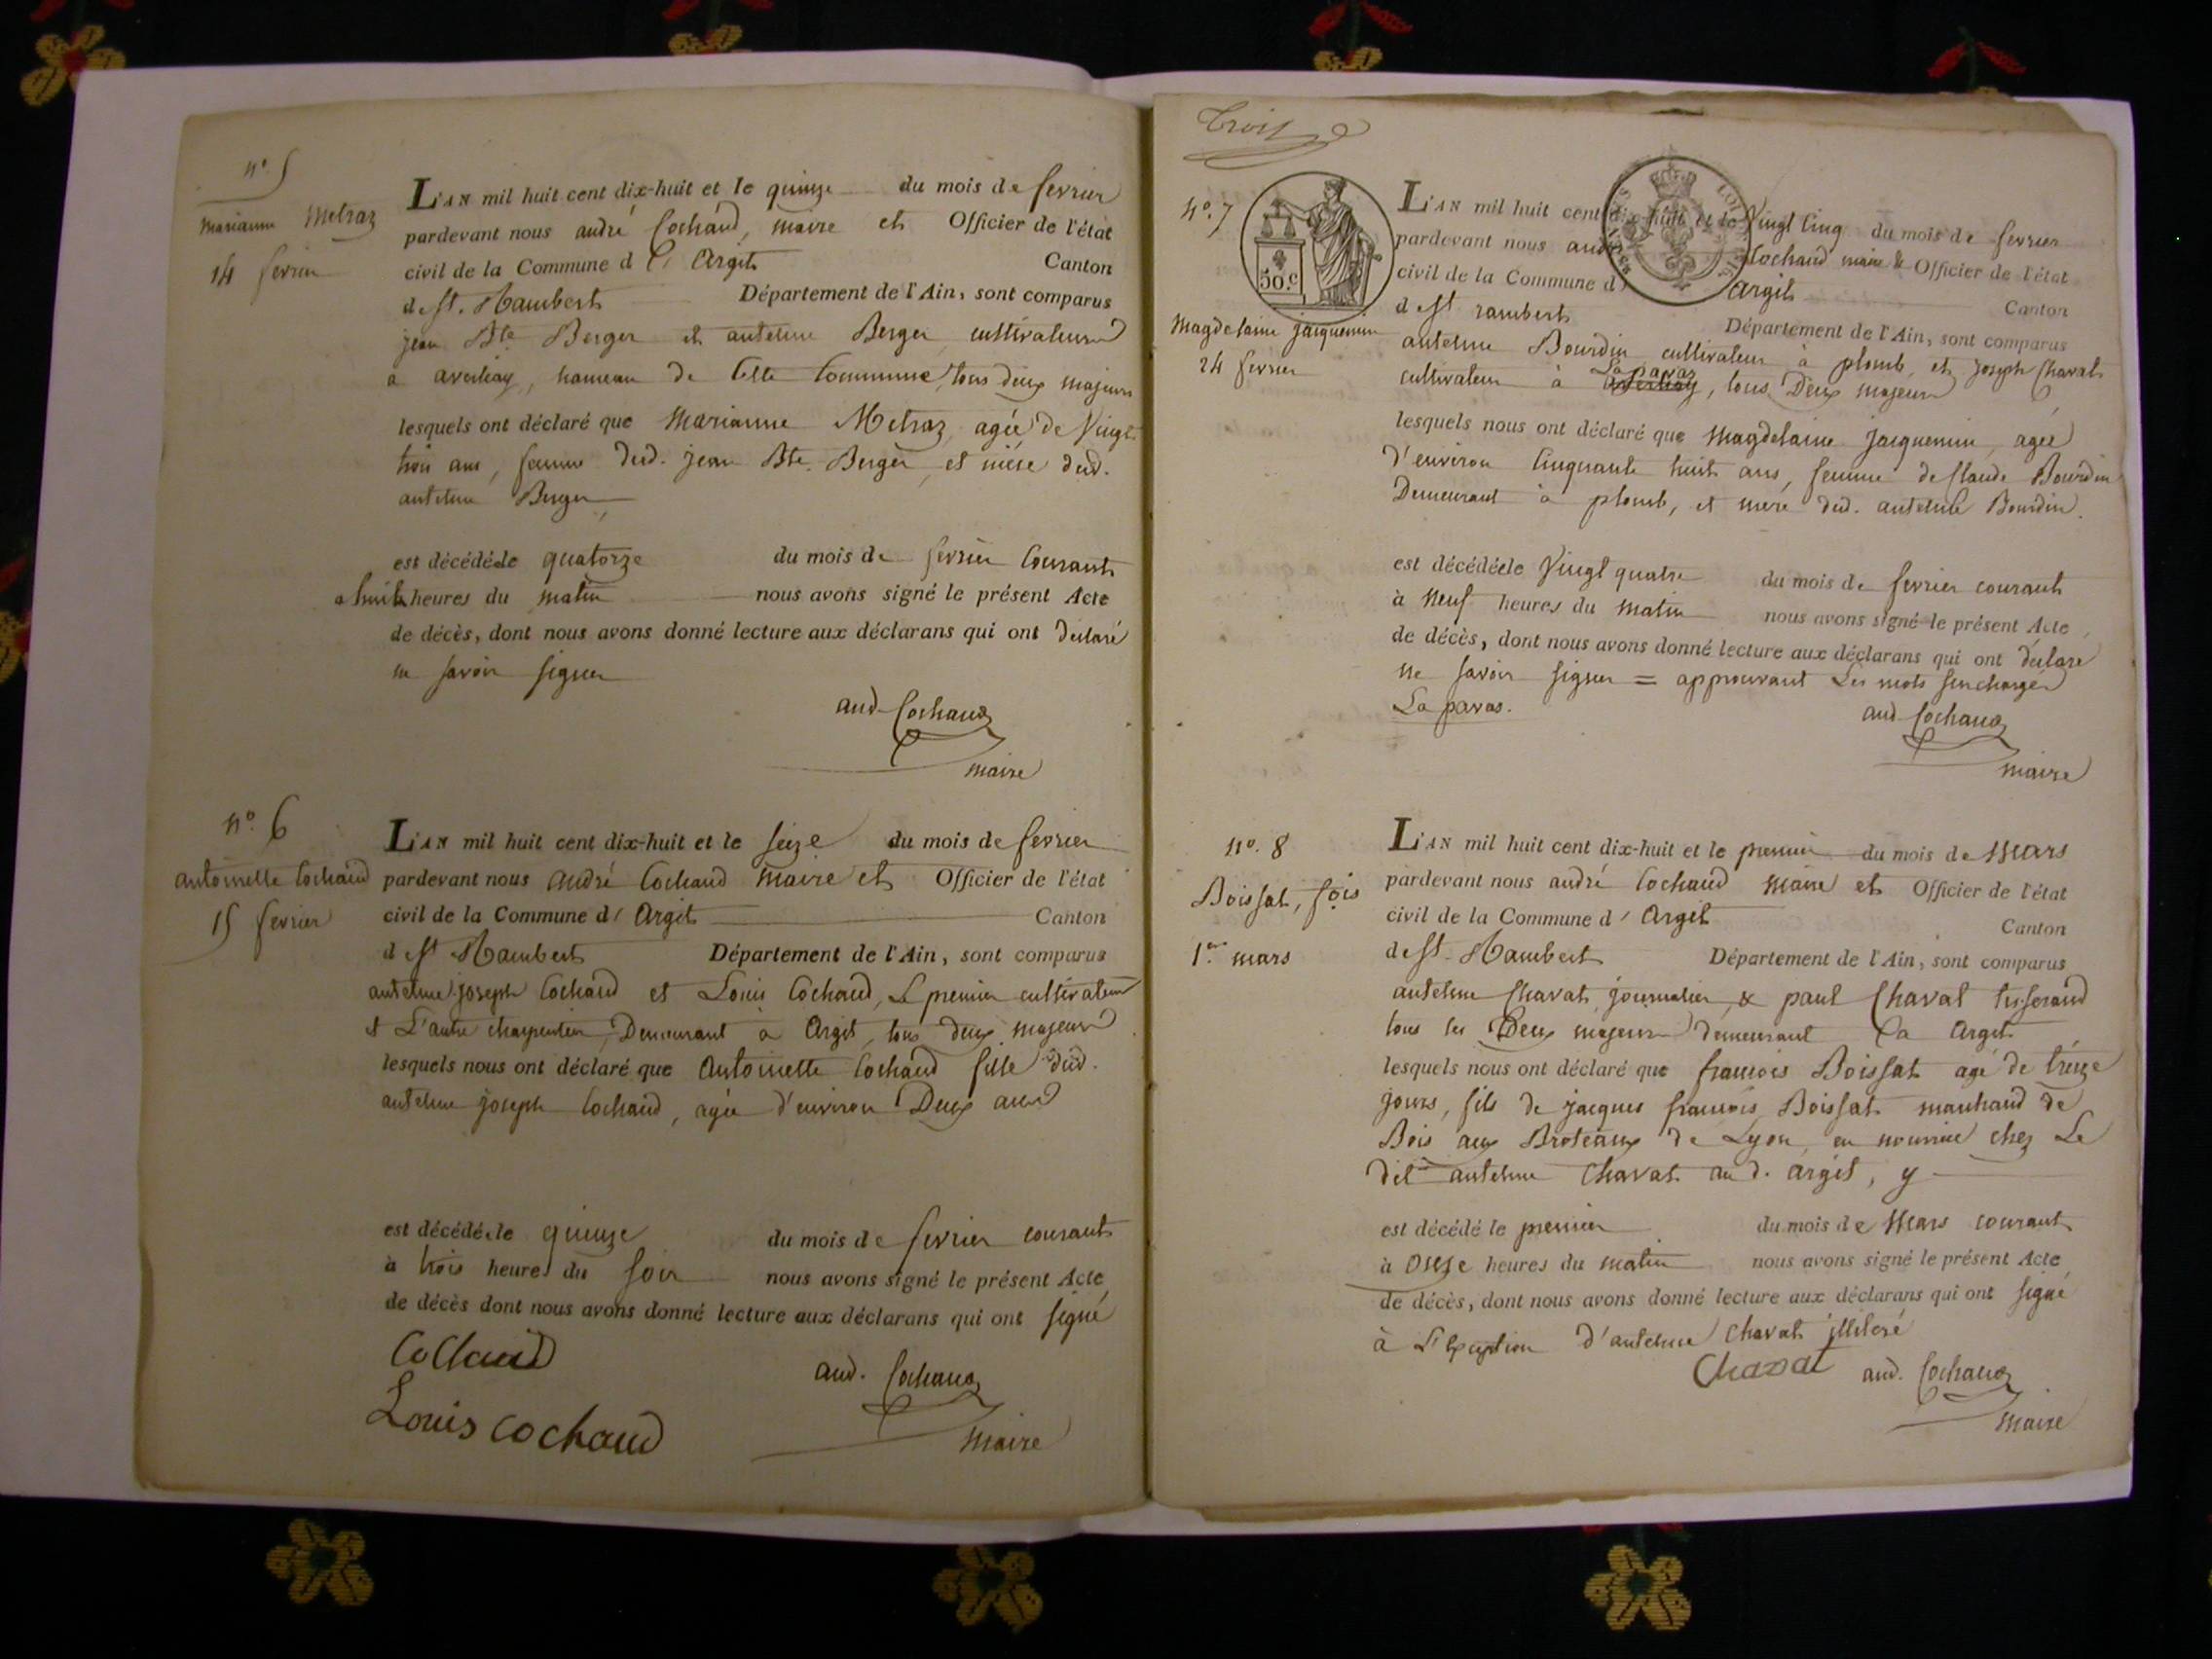 n.° 5
Marianne Metraz
14 fevrier
L'AN mil huit cent dix-huit et le quinze du mois de fevrier
pardevant nous andré Cochand, maire et Officier de l'état
civil de la Commune d' Argit Canton
de St. Rambert Département de l'Ain, sont comparus
jean Bte Berger et antelme Berger cultivateurs
a averliaz, hameau de Cette Commune, tous deux majeurs
lesquels ont déclaré que Marianne Metraz agée de Vingt
trois ans, femme dud. jean Bte. Berger, et niéce dud.
antelme Berger
est décédée le quatorze du mois de fevrier Courant
a huit heures du matin nous avons signé le présent Acte
de décès, dont nous avons donné lecture aux déclarans qui ont déclaré
ne savoir signer
and. Cochand
maire
n.° 6
antoinette Cochand
15 fevrier
L'AN mil huit cent dix-huit et le seize du mois de fevrier
pardevant nous andré Cochand maire et Officier de l'état
civil de la Commune d' Argit Canton
de St Rambert Département de l'Ain, sont comparus
antelme joseph Cochand et Louis Cochand, Le premier cultivateur
et L'autre charpentier, Demeurant à Argit, tous deux majeurs
lesquels nous ont déclaré que Antoinette Cochand fille dud.
antelme joseph Cochand, agée d'environ Deux ans
est décédée le quinze du mois de fevrier courant
à trois heures du soir nous avons signé le présent Acte
de décès dont nous avons donné lecture aux déclarans qui ont signé
Cochand
and. Cochand
Louis cochand
maire
Trois
n.° 7
50.c
Magdelaine jacquemin
24 fevrier
L'AN mil huit cent dix-huit et le Vingt Cinq du mois de fevrier
pardevant nous andré Cochand maire & Officier de l'état
civil de la Commune d' argit Canton
de St rambert Département de l'Ain, sont comparus
antelme Bourdin cultivateur à plomb, et joseph Chavat
La pavas
cultivateur à averliaz, tous Deux majeurs
lesquels nous ont déclaré que Magdelaine jacquemin, agée
d'environ Cinquante huit ans, femme de Claude Bourdin
Demeurant à plomb, et mere dud. antelme Bourdin.
est décédée le Vingt quatre du mois de fevrier courant
à Neuf heures du Matin nous avons signé le présent Acte
de décès, dont nous avons donné lecture aux déclarans qui ont déclaré
ne savoir signer = approuvant Les mots surchargés
La pavas.
and Cochand
maire
n°. 8
Boissat, fçois
1.er mars
L'AN mil huit cent dix-huit et le premier du mois de Mars
pardevant nous andré Cochand Maire et Officier de l'état
civil de la Commune d' Argit Canton
de St. Rambert Département de l'Ain, sont comparus
antelme Chavat journalier, & paul Chavat tisserand
tous les Deux majeurs demeurant à Argit
lesquels nous ont déclaré que francois Boissat agé de treize
jours, fils de jacques francois Boissat marchand de
Bois aux Broteaux de Lyon en nourrice chez Le
dit antelme Chavat au d. argit, y
est décédé le premier du mois de Mars courant
à Onze heures du matin nous avons signé le présent Acte
de décès, dont nous avons donné lecture aux déclarans qui ont signé
à L'Exception d'antelme Chavat illiteré
Chavat and. Cochand
maire